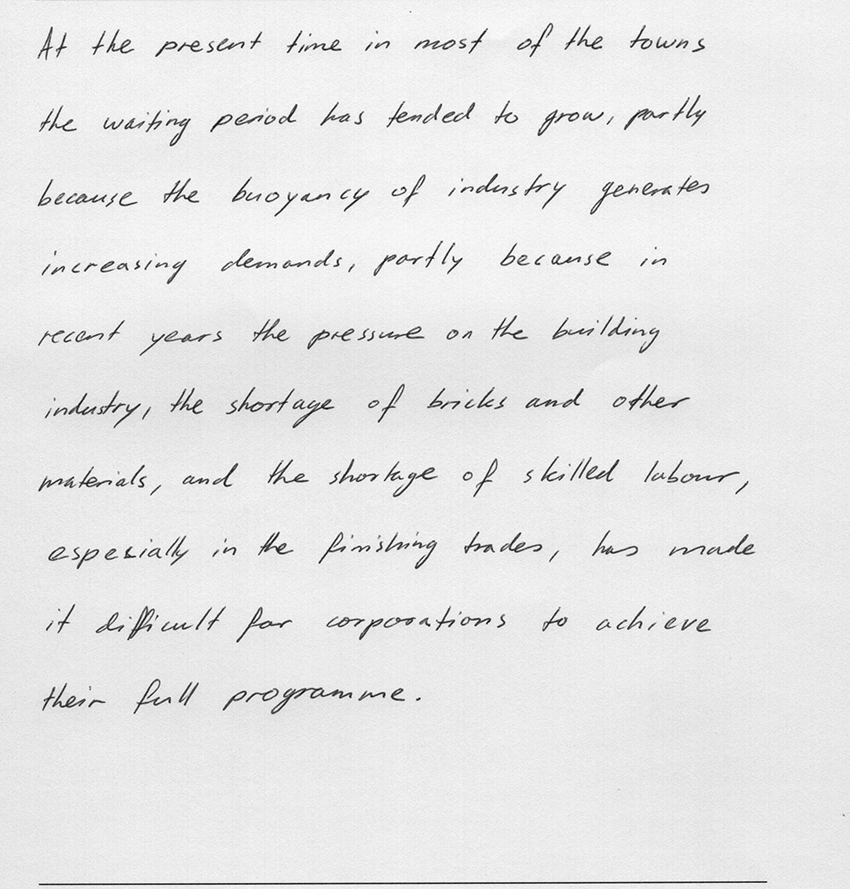 At the present time in most of the towns
the waiting period has tended to grow, partly
because the buoyancy of industry generates
increasing demands, partly because in
recent years the pressure on the building
industry, the shortage of bricks and other
materials, and the shortage of skilled labour,
especially in the finishing trades, has made
it difficult for corporations to achieve
their full programme.